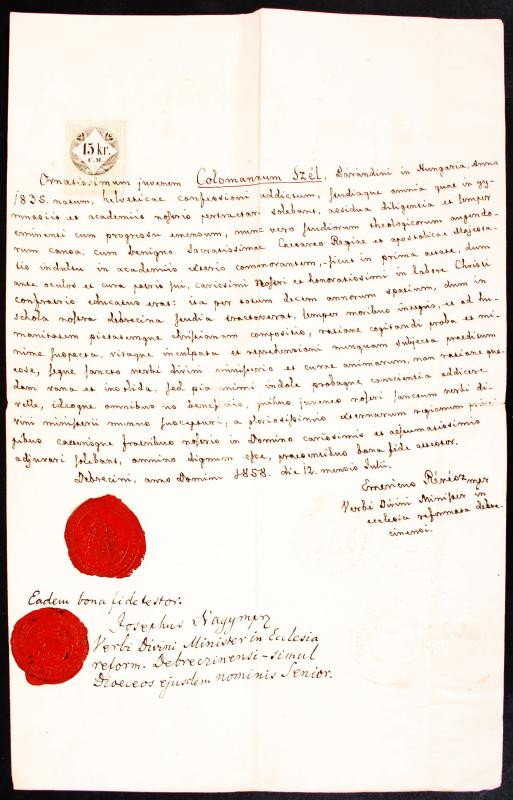 15 kr.
C. M.
Ornatissimum juvenem Colomannum Szél, Darandini in Hungaria, Anno
1835. natum, helveticae confessioni addictum, studiaque omnia quae in gy-
mnasiis et academiis nostris pertractari solebant, assidua diligentia et semper
eminenti cum progressu emensum, nunc vero studiorum theologicorum augendo-
rum causa, cum benigno Sacratissimae Caesareo Regiae et apostolicae Majesta-
tis indultu in academiis exteris commorantem, sicut in prima aetate, dum
ante oculos et cura patris sui, carissimi nostri et honoratissimi in labore Christi
confratris educatus erat: ita per totum decem annorum spatium, dum in
schola nostra debrecina studia tractaverat, semper moribus integris, et ad hu-
manitatem pietatemque christianam compositis, ratione cogitandi proba et mi-
nime suspecta, vitaque inculpata et reprehensioni nunquam subjecta praeditum
esse, seque sancto verbi divini ministerio et curae animarum, non ratione qua-
dam vana et insolida, sed pia animi indole probaque conscientia addicere
velle, ideoque omnibus iis beneficiis, quibus juvenes nostri sanctum verbi di-
vini ministerii munus suscepturi, a gloriosissimis externarum regionum princi-
pibus caeterisque fratribus nostris in Domino carissimis et aestumatissimis
adjuvari solebant, omnino dignum esse, praesentibus bona fide attestor.
Debrecini, anno Domini 1858. die 12. mensis Julii.
Emericus Révész mpr
Verbi Divini Minister in
ecclesia reformata debre-
cinensi.
Eadem bona fide testor.
Josephus Nagy mpr
Verbi Divini Minister in Ecclesia
reform. Debreczinensi - simul
Dioeceos ejusdem nominis Senior.